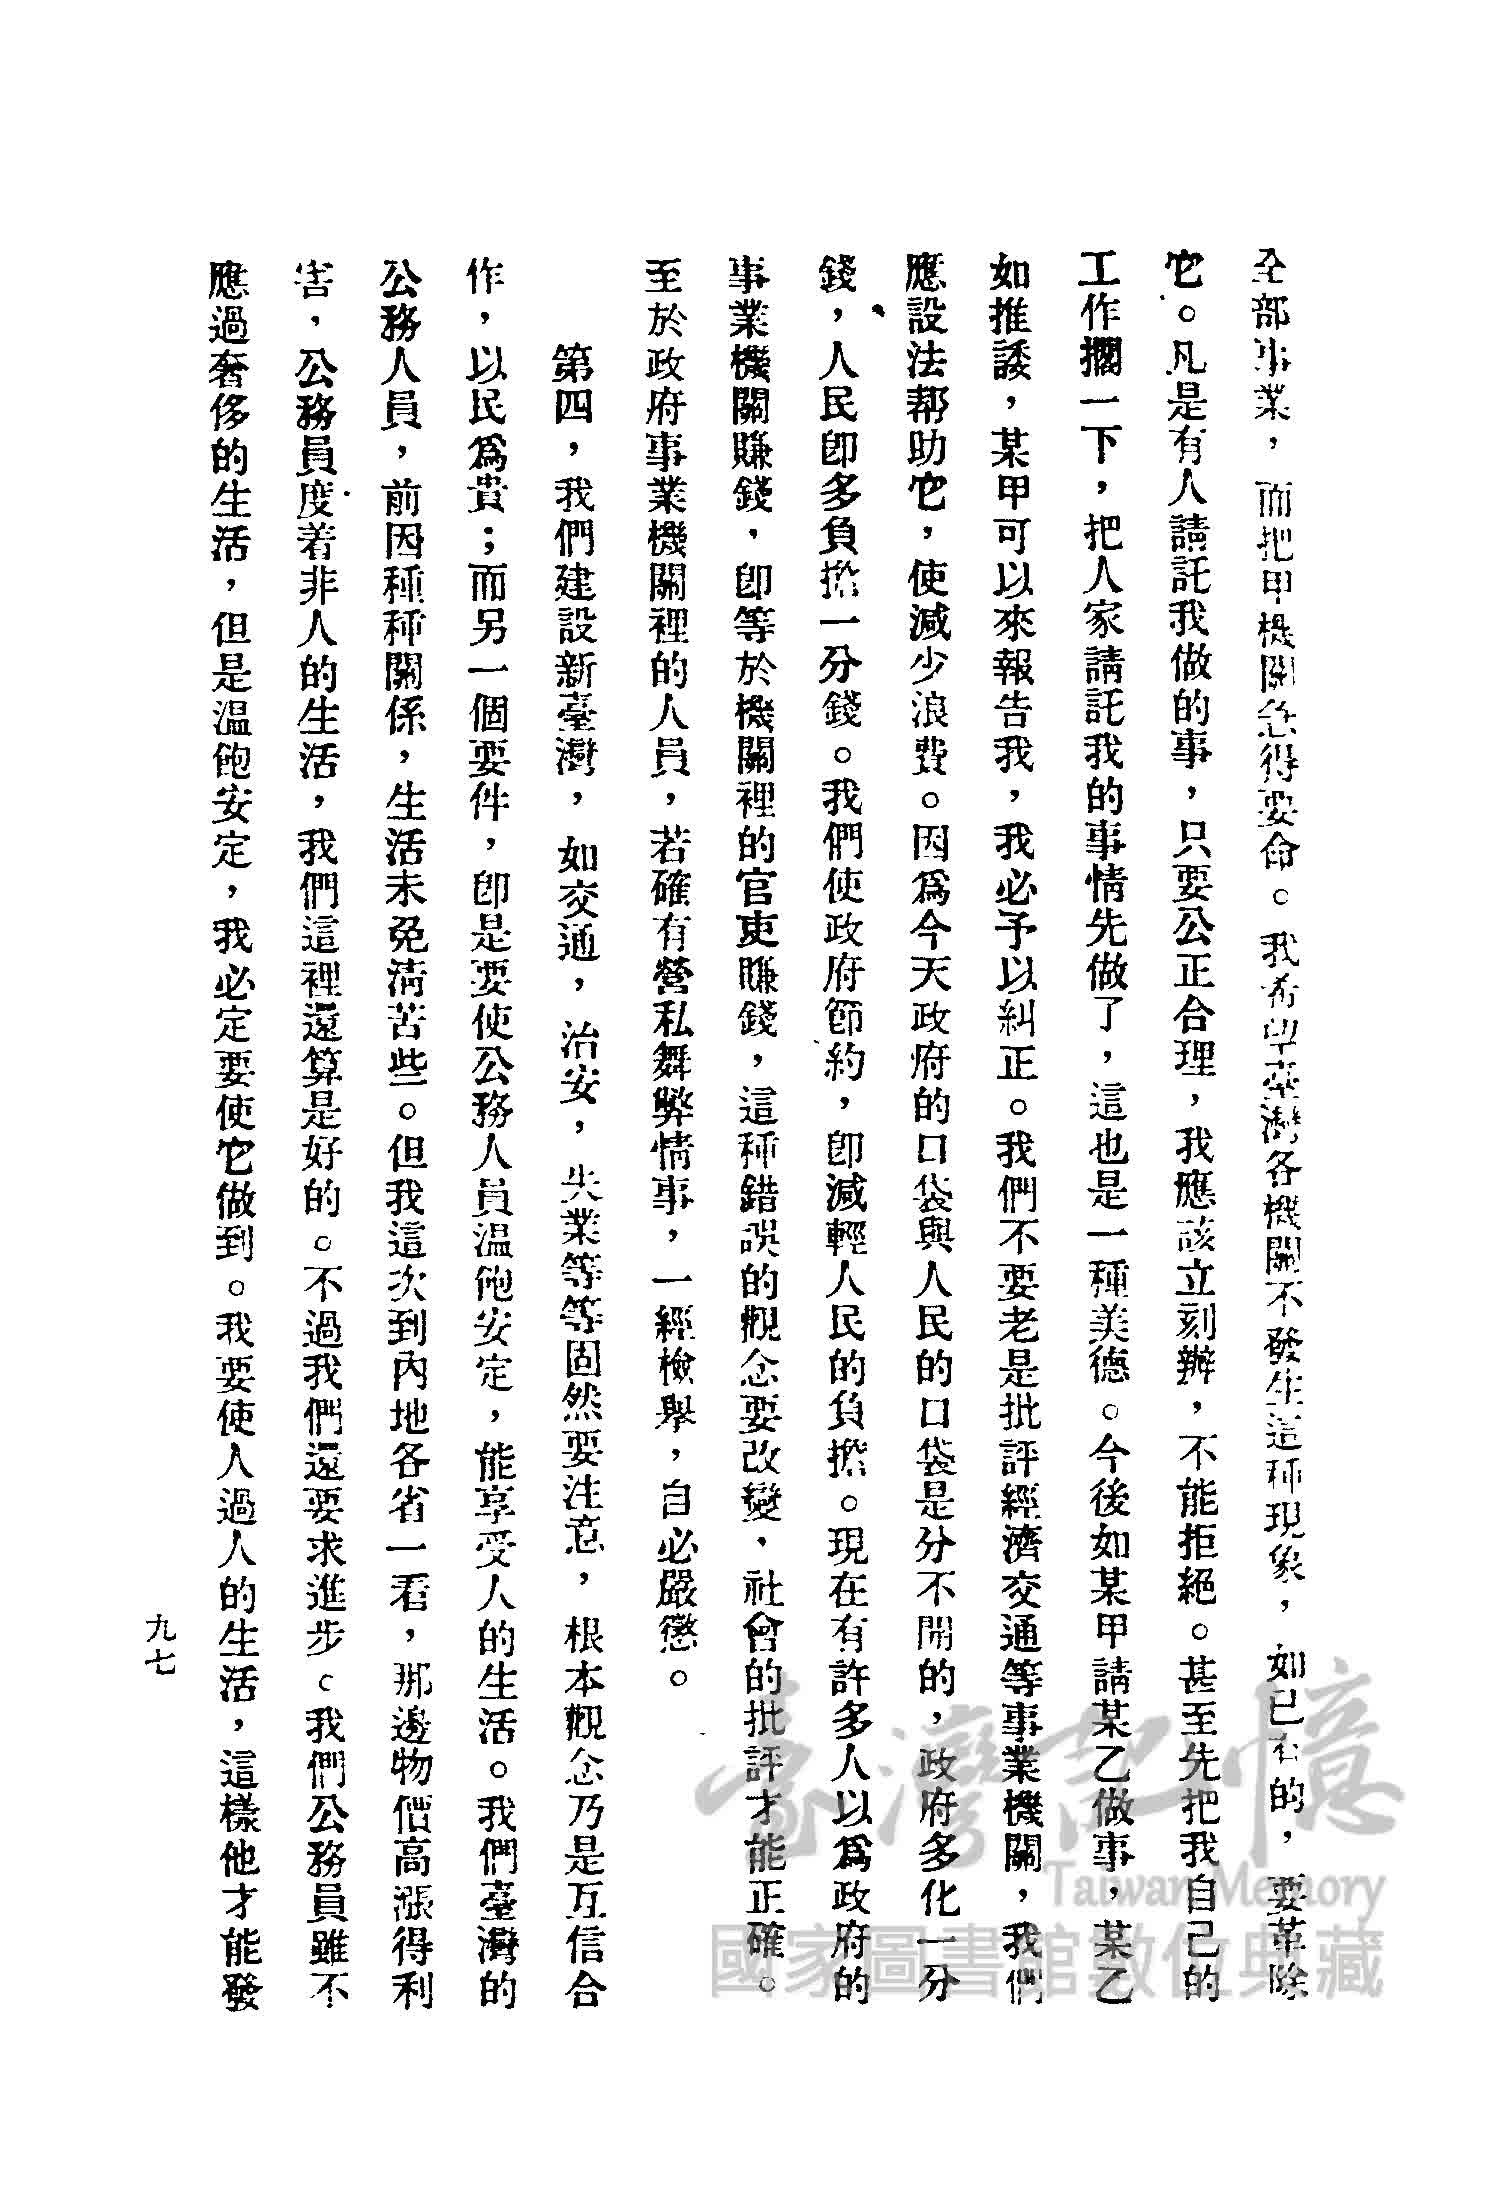 全部事業，而把甲機關急得要命。我希望臺灣各機關不發生這種現象，如已有的，要革除
它。凡是有人請託我做的事，只要公正合理，我應該立刻辦，不能拒絕。甚至先把我自己的
工作擱一下，把人家請託我的事情先做了，這也是一種美德。今後如某甲請某乙做事，某乙
如推諉，某甲可以來報告我，我必予以糾正。我們不要老是批評經濟交通等事業機關，我們
應設法帮助它，使減少浪費。因爲今天政府的口袋與人民的口袋是分不開的，政府多化一分
錢，人民卽多負擔一分錢。我們使政府節約，卽減輕人民的負擔。現在有許多人以爲政府的
事業機關賺錢，卽等於機關裡的官吏賺錢，這種錯誤的觀念要改變，社會的批評才能正確。
至於政府事業機關裡的人員，若確有營私舞弊情事，一經檢舉，自必嚴懲。
第四，我們建設新臺灣，如交通，治安，失業等等固然要注意，根本觀念乃是互信合
作，以民爲貴；而另一個要件，卽是要使公務人員溫飽安定，能享受人的生活。我們臺灣的
公務人員，前因種種關係，生活未免淸苦些。但我這次到內地各省一看，那邊物價高漲得利
害，公務員度着非人的生活，我們這裡還算是好的。不過我們還要求進步。我們公務員雖不
應過奢侈的生活，但是溫飽安定，我必定要使它做到。我要使人過人的生活，這樣他才能發
九七
臺灣記憶
Taiwan Memory
國家圖書館數位典藏